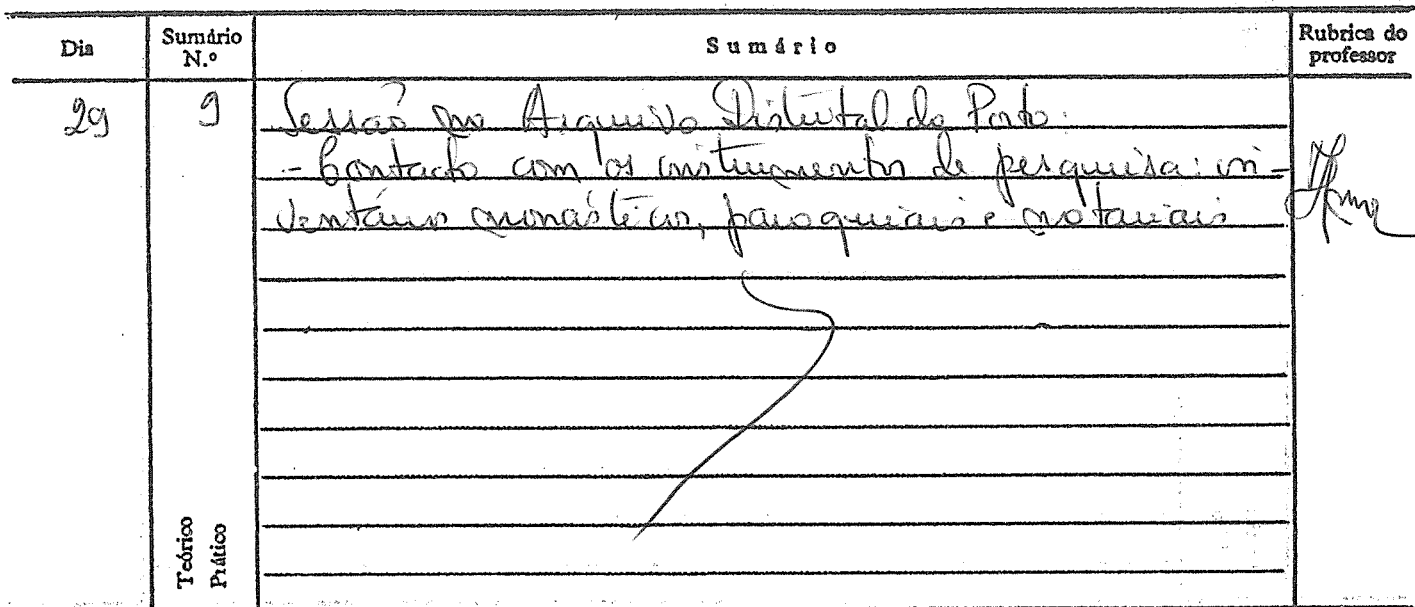 Dia
Sumário N.º
Sumário
Rubrica do professor
29
9
Sessão no Arquivo Distrital do Porto.
- Contacto com os instrumentos de pesquisa: in-
ventários monásticos, paroquiais e notariais
Teórico
Prático